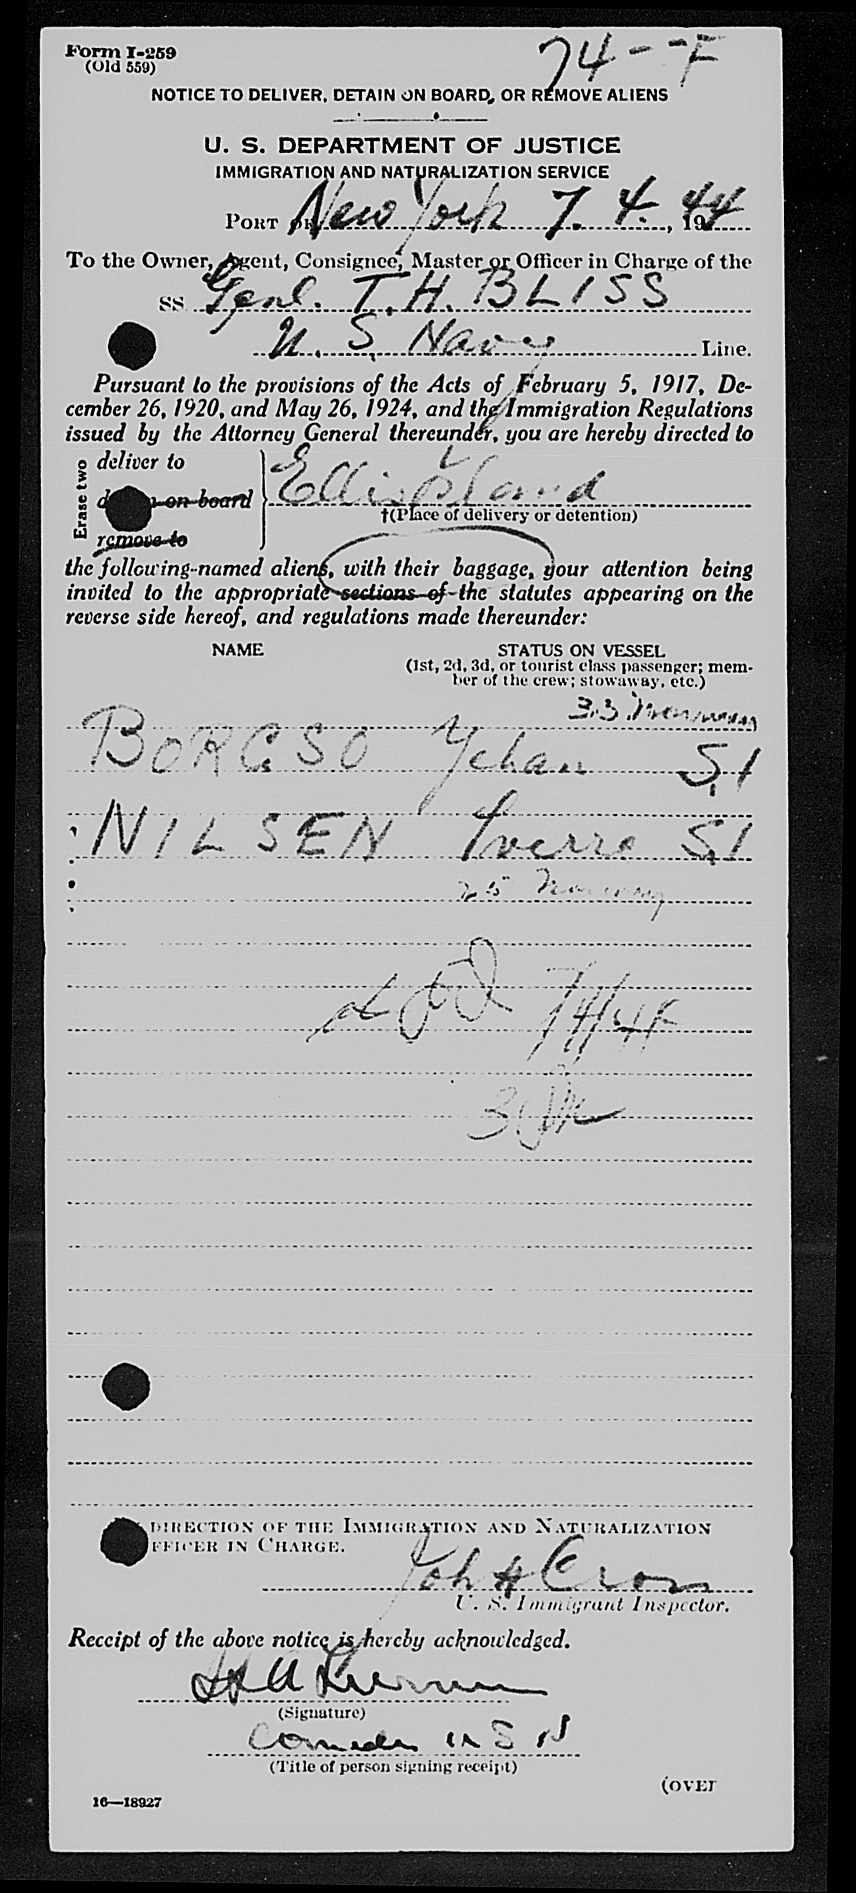 Form I-259
(Old 559)
74--F
NOTICE TO DELIVER, DETAIN ON BOARD, OR REMOVE ALIENS
U. S. DEPARTMENT OF JUSTICE
IMMIGRATION AND NATURALIZATION SERVICE
PORT OF New York 7. 4. , 1944
To the Owner, Agent, Consignee, Master or Officer in Charge of the
SS Genl. T. H. BLISS
U. S. Navy Line.
Pursuant to the provisions of the Acts of February 5, 1917, De-
cember 26, 1920, and May 26, 1924, and the Immigration Regulations
issued by the Attorney General thereunder, you are hereby directed to
Erase two
deliver to
on board
remove to
Ellis Island
†(Place of delivery or detention)
the following-named aliens, with their baggage, your attention being
invited to the appropriate sections of the statutes appearing on the
reverse side hereof, and regulations made thereunder:
NAME
STATUS ON VESSEL
(1st, 2d, 3d, or tourist class passenger; mem-
ber of the crew; stowaway, etc.)
33
BORGSO S.I
NILSEN S.I
25 Norway
7/4/44
DIRECTION OF THE IMMIGRATION AND NATURALIZATION
OFFICER IN CHARGE.
Joh H Cross
U. S. Immigrant Inspector.
Receipt of the above notice is hereby acknowledged.
(Signature)
(Title of person signing receipt)
16—18927
(OVER